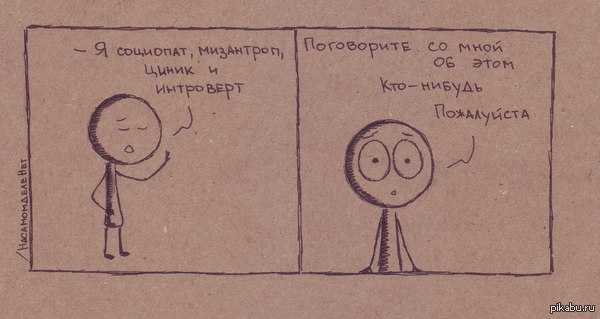 - Я социопат, мизантроп,
циник и
интроверт
Поговорите со мной
об этом
Кто-нибудь
Пожалуйста
/НаСамомДелеНет
pikabu.ru